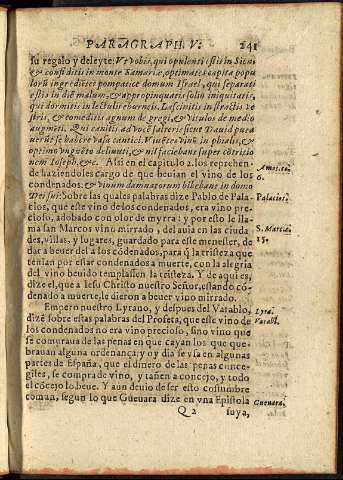 PARAGRAPH. V. 241
su regalo y deleyte: Vę vobis, qui opulenti estis in Sion,
& confiditis in monte Samariæ, optimates capita popu
lorū ingredientes pompaticè domum Israel, qui separati
estis in diē malum, & appropinquatis solio iniquitatis,
qui dormitis in lectulis eburneis. Lascivitis in stratis ve
stris, & comeditis agnum de gregi, & vitulos de medio
augmēti. Qui canitis ad vocē psalterij: sicut David puta
uerūt se habere vasa cantici. Bibētes vinū in phialis, &
optimo vnguēto deliniti, & nil patiebātur super cōtritio
nem Ioseph, &c. Assi en el capitulo 2. los reprehen-
de haziendoles cargo de que beuian el vino de los
condenados: & vinum damnatorum bibebant in domo
Dei sui: Sobre las quales palabras dize Pablo de Pala
cios, que este vino de los condenados, era vino pre-
cioso, adobado con olor de myrra: y por esto le lla-
ma san Marcos vino mirrado, del auia en las ciuda
des, villas, y lugares, guardado para este menester, de
dar a beuer del a los cōdenados, para q̄ la tristeza que
tenian por estar condenados a muerte, con la alegria
del vino beuido templassen la tristeza. Y de aqui es,
dize el, que a Iesu Christo nuestro Señor, estando cō-
denado a muerte, le dieron a beuer vino mirrado.
Empero nuestro Lyrano, y despues del Vatablo,
dizē sobre estas palabras del Profeta, que este vino de
los condenados no era vino precioso, sino vino que
se compraua de las penas en que cayan los que que-
brauan alguna ordenança; y oy dia se vsa en algunas
partes de España, que el dinero de las penas conce-
giles, se compra de vino, y tañen a concejo, y todo
el cōcejo lo beue. Y aun deuio de ser esto costumbre
coman, segun lo que Gueuara dize en vna Epistola
Q 2 suya,
Amos. ca.
6.
Palacios.
S. Marc. ca.
15.
Lyra.
Vatabl.
Gueuara.